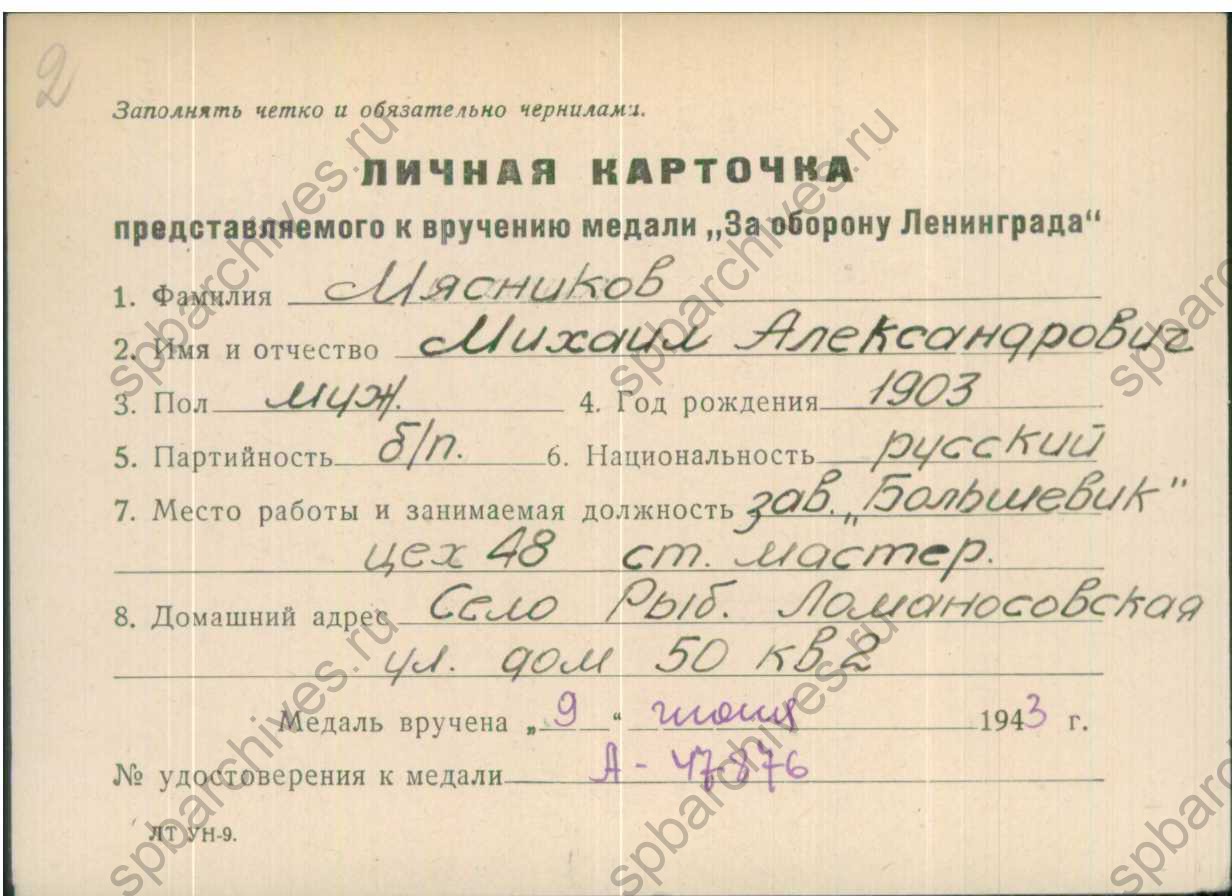 2
Заполнять четко и обязательно чернилами.
ЛИЧНАЯ КАРТОЧКА
представляемого к вручению медали „За оборону Ленинграда“
1. Фамилия Мясников
2. Имя и отчество Михаил Александрович
3. Пол муж. 4. Год рождения 1903
5. Партийность б/п. 6. Национальность русский
7. Место работы и занимаемая должность зав. „Большевик"
цех 48 ст. мастер.
8. Домашний адрес Село Рыб. Ломаносовская
ул. дом 50 кв 2
Медаль вручена „9“ июня 1943 г.
№ удостоверения к медали А - 47876
ЛТ УН-9.
spbarchives.ru
spbarchives.ru
spbarchives.ru
spbarchives.ru
spbarchives.ru
spbarchives.ru